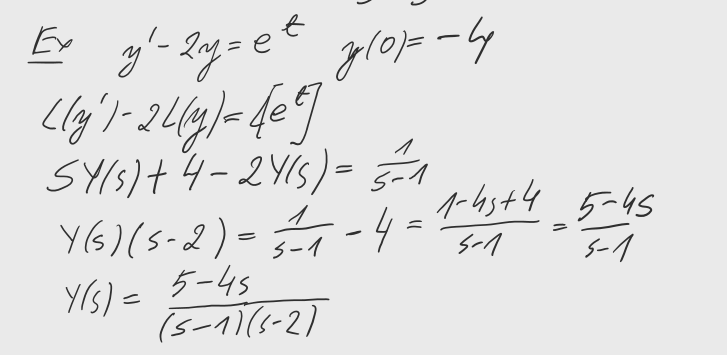 Ex y' - 2y = e^t y(0) = -4
L(y') - 2L(y) = L[e^t]
SY(s) + 4 - 2Y(s) = 1/(s-1)
Y(s)(s-2) = 1/(s-1) - 4 = (1-4s+4)/(s-1) = (5-4s)/(s-1)
Y(s) = (5-4s)/((s-1)(s-2))